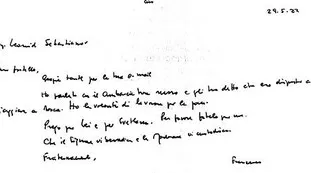 29.5.22
Leonid Sebastianov
fratello,
Grazie tante per la tua e-mail
Ho parlato con il Ambasciatore russo e gli ho detto che ero disposto a
viaggiare a Mosca. Ho la volontà di lavorare per la pace.
Prego per lei e per Svetlana. Per favore fatelo per me.
Che il Signore vi benedica e la Madonna vi custodisca.
Fraternamente,
Francesco